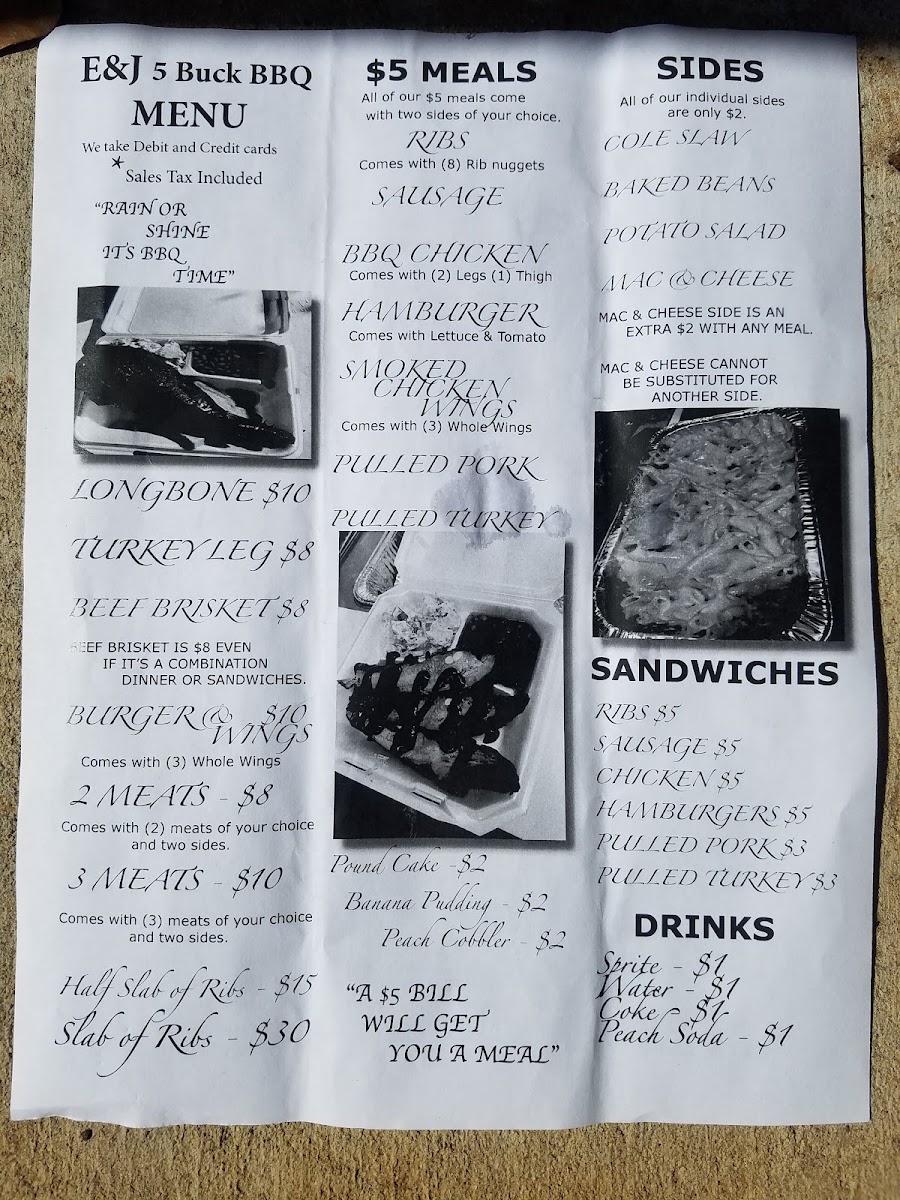 E&J 5 Buck BBQ
MENU
We take Debit and Credit cards
* Sales Tax Included
"RAIN OR
SHINE
IT'S BBQ
TIME"
LONGBONE $10
TURKEY LEG $8
BEEF BRISKET $8
BEEF BRISKET IS $8 EVEN
IF IT'S A COMBINATION
DINNER OR SANDWICHES.
BURGER & $10
WINGS
Comes with (3) Whole Wings
2 MEATS - $8
Comes with (2) meats of your choice
and two sides.
3 MEATS - $10
Comes with (3) meats of your choice
and two sides.
Half Slab of Ribs - $15
Slab of Ribs - $30
$5 MEALS
All of our $5 meals come
with two sides of your choice.
RIBS
Comes with (8) Rib nuggets
SAUSAGE
BBQ CHICKEN
Comes with (2) Legs (1) Thigh
HAMBURGER
Comes with Lettuce & Tomato
SMOKED
CHICKEN
WINGS
Comes with (3) Whole Wings
PULLED PORK
PULLED TURKEY
Pound Cake -$2
Banana Pudding - $2
Peach Cobbler - $2
"A $5 BILL
WILL GET
YOU A MEAL"
SIDES
All of our individual sides
are only $2.
COLE SLAW
BAKED BEANS
POTATO SALAD
MAC & CHEESE
MAC & CHEESE SIDE IS AN
EXTRA $2 WITH ANY MEAL.
MAC & CHEESE CANNOT
BE SUBSTITUTED FOR
ANOTHER SIDE.
SANDWICHES
RIBS $5
SAUSAGE $5
CHICKEN $5
HAMBURGERS $5
PULLED PORK $3
PULLED TURKEY $3
DRINKS
Sprite - $1
Water - $1
Coke - $1
Peach Soda - $1